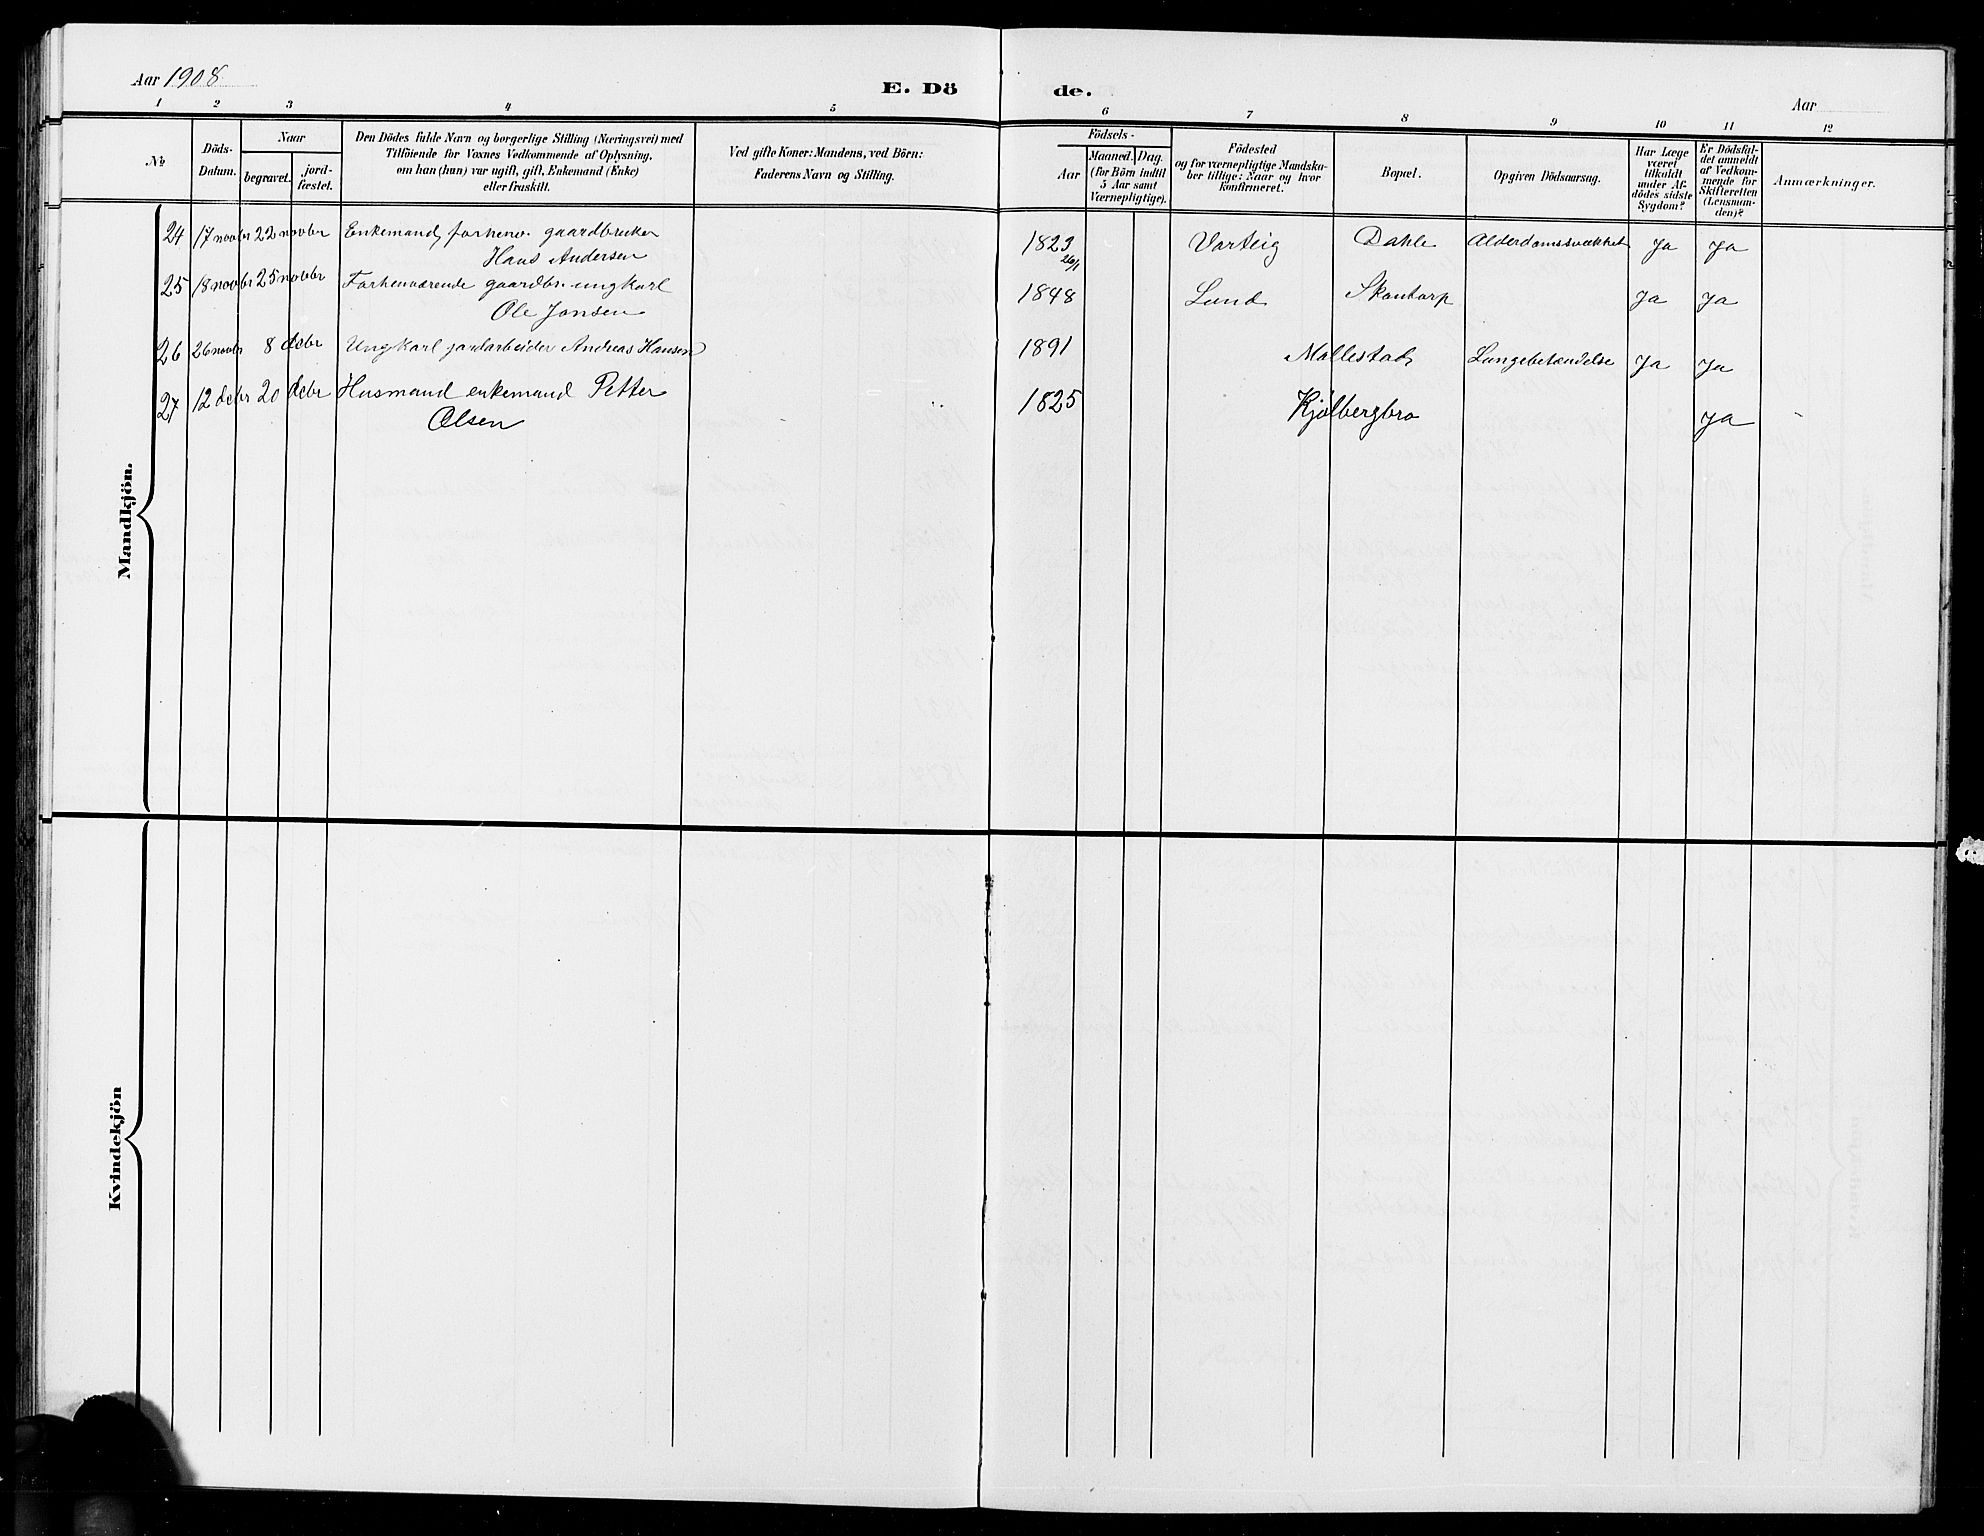 Aar 1908
E. Dö
de.
Aar
1 2 3 4 5 6 7 8 9 10 11 12
No
Döds-
Datum.
Naar
begravet.
jord-
fæstet.
Den Dödes fulde Navn og borgerlige Stilling (Næringsvei) med
Tilföiende for Voxnes Vedkommende af Oplysning,
om han (hun) var ugift, gift, Enkemand (Enke)
eller fraskilt.
Ved gifte Koner: Mandens, ved Börn:
Faderens Navn og Stilling.
Födsels-
Aar
Maaned. Dag.
(for Börn indtil
5 Aar samt
Værnepligtige).
Födested
og for værnepligtige Mandska-
ber tillige: Naar og hvor
konfirmeret.
Bopæl.
Opgiven Dödsaarsag.
Har Læge
været
tilkaldt
under Af-
dödes sidste
Sygdom?
Er Dödsfal-
det anmeldt
af Vedkom-
mende for
Skifteretten
(Lensman-
den)?
Anmærkninger.
Mandkjön.
24 17 novbr 22 novbr Enkemand, forhenv. gaardbruker 1823 Varteig Dahle Alderdomssvækket Ja Ja
Hans Andersen 26/1
25 18 novbr 25 novbr Forhenværende gaardbr. ungkarl 1848 Lund Skantorp Ja Ja
Ole Jonsen
26 26 novbr 8 decbr Ungkarl jordarbeider Andreas Hansen 1891 Mallestad, Lungebetændelse Ja Ja
27 12 decbr 20 decbr Husmand enkemand Petter 1825 Kjølbergbro Ja -
Olsen
Kvindekjön